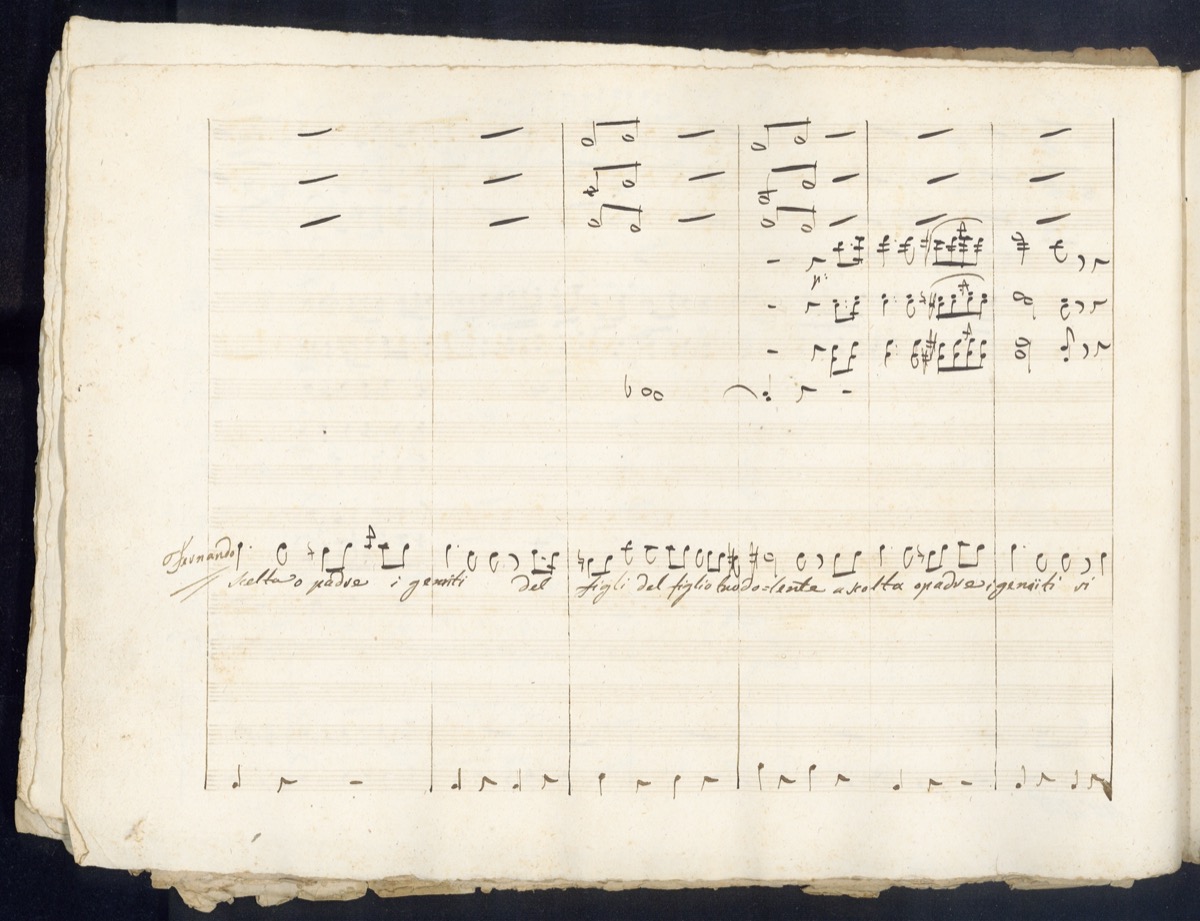 Fernando
scelta o padre i gemiti del figli del figlio tuo do=lente ascolta o padre i gemiti si